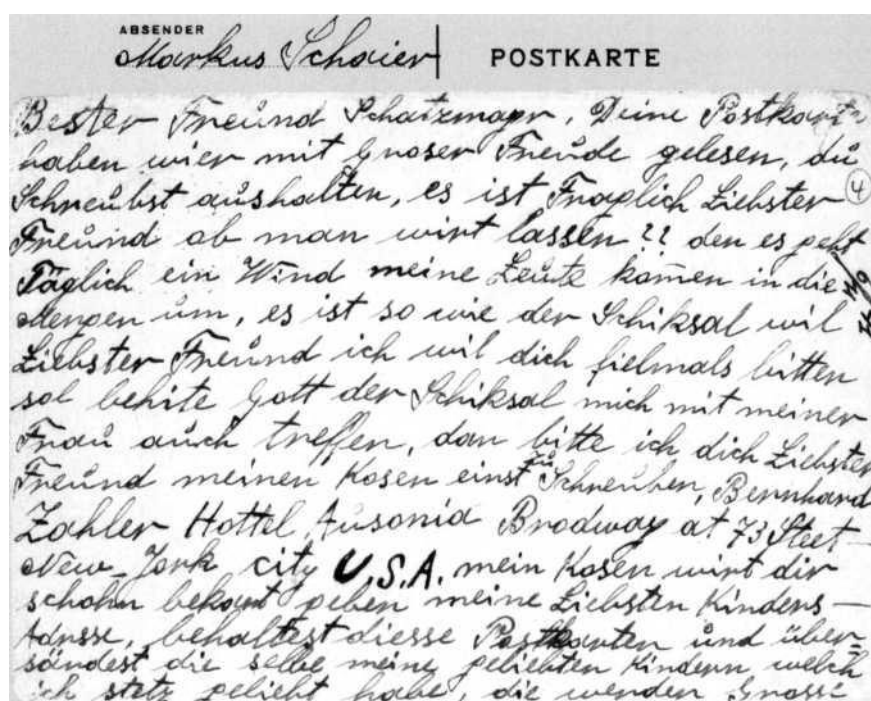 ABSENDER
Markus Schaier POSTKARTE
Bester Freund Schatzmayr, Deine Postkart
haben wier mit Groser Freude gelesen, du
Schreubst aushalten, es ist Fraglich Liebster
4
Freund ob man wirt lassen ?? den es geht
Täglich ein Wind meine Leute kom̄en in die
Mengen um, es ist so wie der Schiksal wil
Liebster Freund ich wil dich fielmals bitten
sol behite Gott der Schiksal mich mit meiner
Frau auch treffen, dan bitte ich dich Liebster
Freund meinen Kosen einst zu Schreuben, Bernhard
Zahler Hottel Ausonia Brodway at 73 Steet
New-York city U.S.A. mein Kosen wirt dir
schohn bekant geben meine Liebsten Kinders-
Adrsse, behaltest diesse Postkarten und über=
sändest die selbe meine geliebten Kindern welch
ich stetz geliebt habe, die werden Grosse